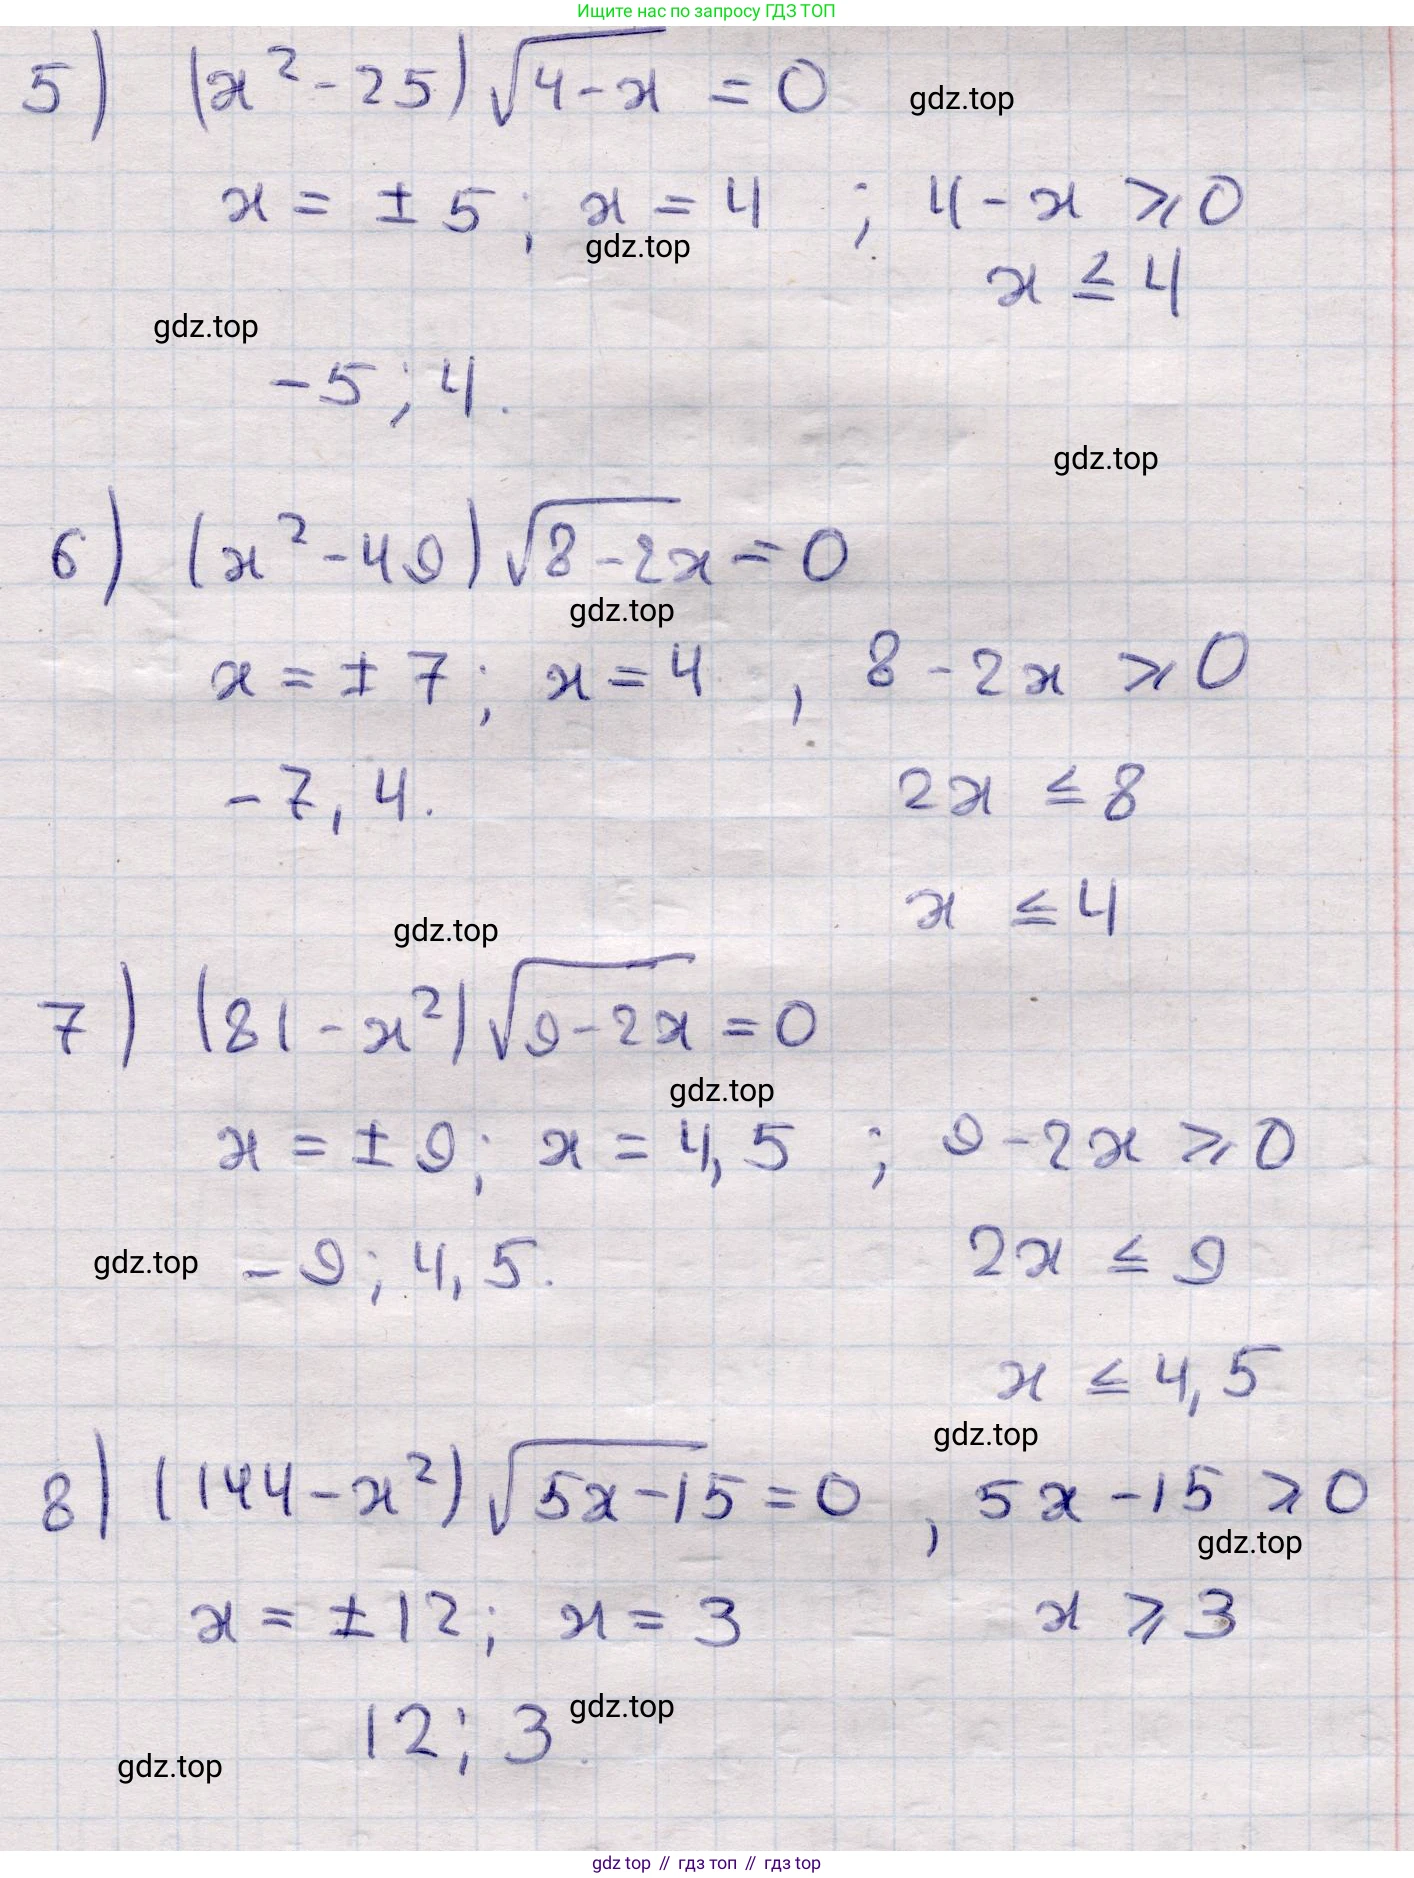 Ищите нас по запросу ГДЗ ТОП
5) (x² - 25)√(4 - x) = 0
gdz.top
x = ± 5; x = 4 ; 4 - x ⩾ 0
gdz.top
x ≤ 4
gdz.top
-5; 4.
gdz.top
6) (x² - 49)√(8 - 2x) = 0
gdz.top
x = ± 7; x = 4 , 8 - 2x ⩾ 0
-7, 4. 2x ≤ 8
x ≤ 4
gdz.top
7) (81 - x²)√(9 - 2x) = 0
gdz.top
x = ± 9; x = 4,5 ; 9 - 2x ⩾ 0
gdz.top -9; 4,5. 2x ≤ 9
x ≤ 4,5
gdz.top
8) (144 - x²)√(5x - 15) = 0 , 5x - 15 ⩾ 0
gdz.top
x = ± 12; x = 3 x ⩾ 3
12; 3. gdz.top
gdz.top
gdz top // гдз топ // гдз top